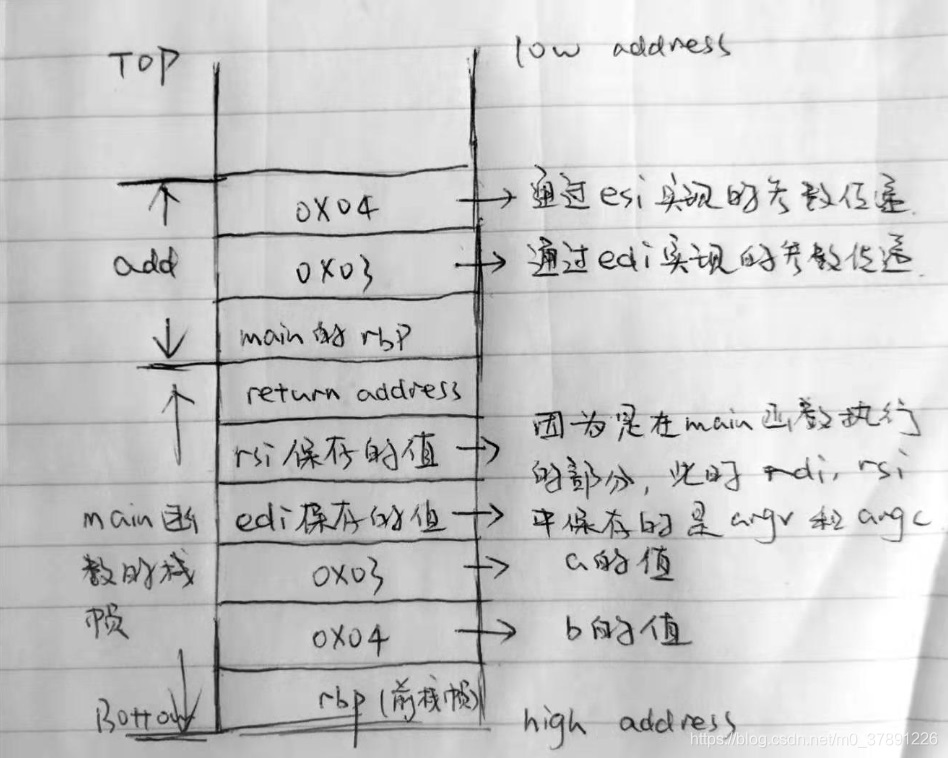 TOP
low address
0X04
通过esi实现的参数传递.
add
0X03
通过edi实现的参数传递.
main的rbp
return address
rsi保存的值
因为是在main函数执行
的部分，此时rdi，rsi
中保存的是argv和argc
edi保存的值
main函
数的栈
帧
0X03
a的值
0X04
b的值
rbp(前栈帧)
Bottow
high address
https://blog.csdn.net/m0_37891226